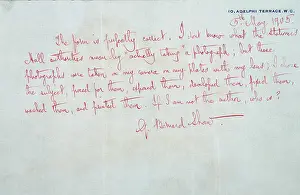 10, ADELPHI TERRACE, W.C.
5th May 1905
The form is perfectly correct. I don't know what the
authorities mean by "actually taking" a photograph; but these
photographs were taken in my camera on my plates with my lens; I chose
the subject, posed for them, exposed them, developed them, fixed them,
washed them, and printed them. If I am not the author, who is?
G. Bernard Shaw